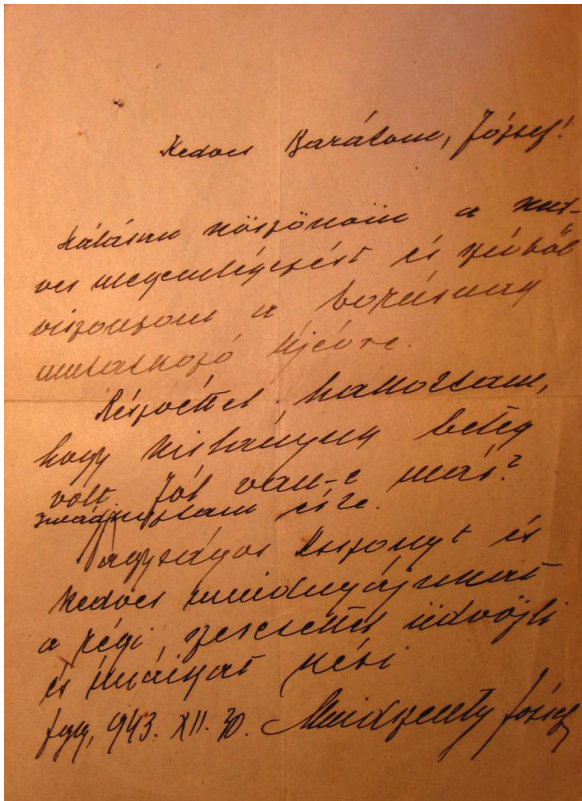 Kedves Barátom, József!
Hálásan köszönöm a ked-
ves megemlékezést és szívből
viszonzom a borúsnak
mutatkozó Újévre.
Részvéttel hallottam,
hogy kislányunk beteg
volt. Jól van-e már?
Imádkoztam érte.
Nagyságos Asszonyt és
kedves mindnyájunkat
a régi szeretettel üdvözli
és imáikat kéri
1943. XII. 30. Mindszenty József